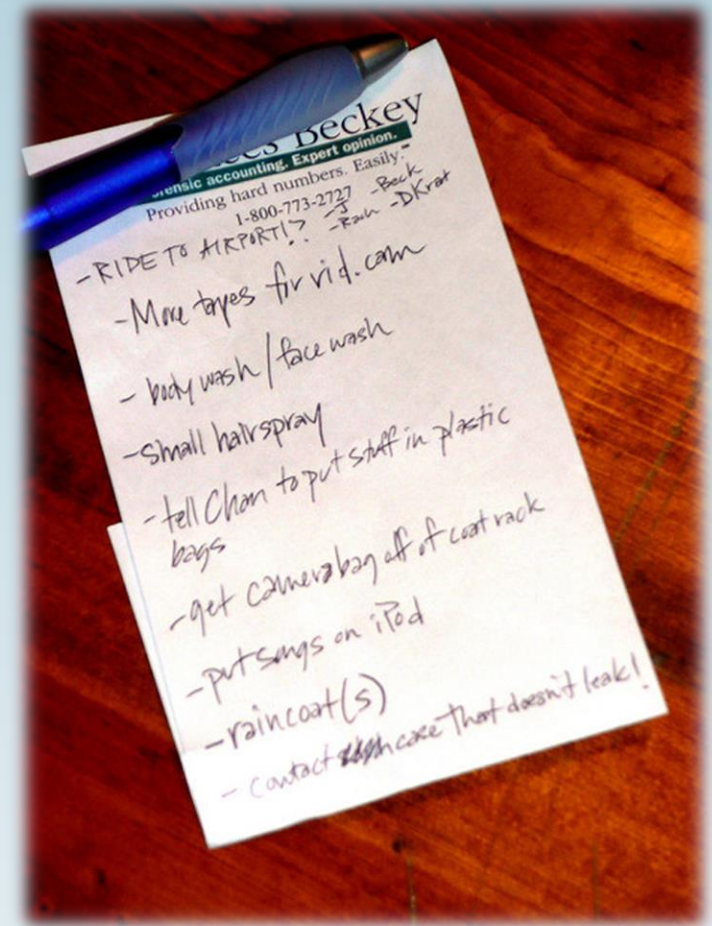 Beckey
ensic accounting. Expert opinion.
Providing hard numbers. Easily.
1-800-773-2727
-J -Beck
-Rach -DKrat
-RIDE TO AIRPORT!?
-More tapes for vid.cam
- body wash/face wash
-small hairspray
-tell Chan to put stuff in plastic
bags
-get camera bag off of coat rack
-put songs on iPod
-raincoat(s)
- contact case that doesn't leak!